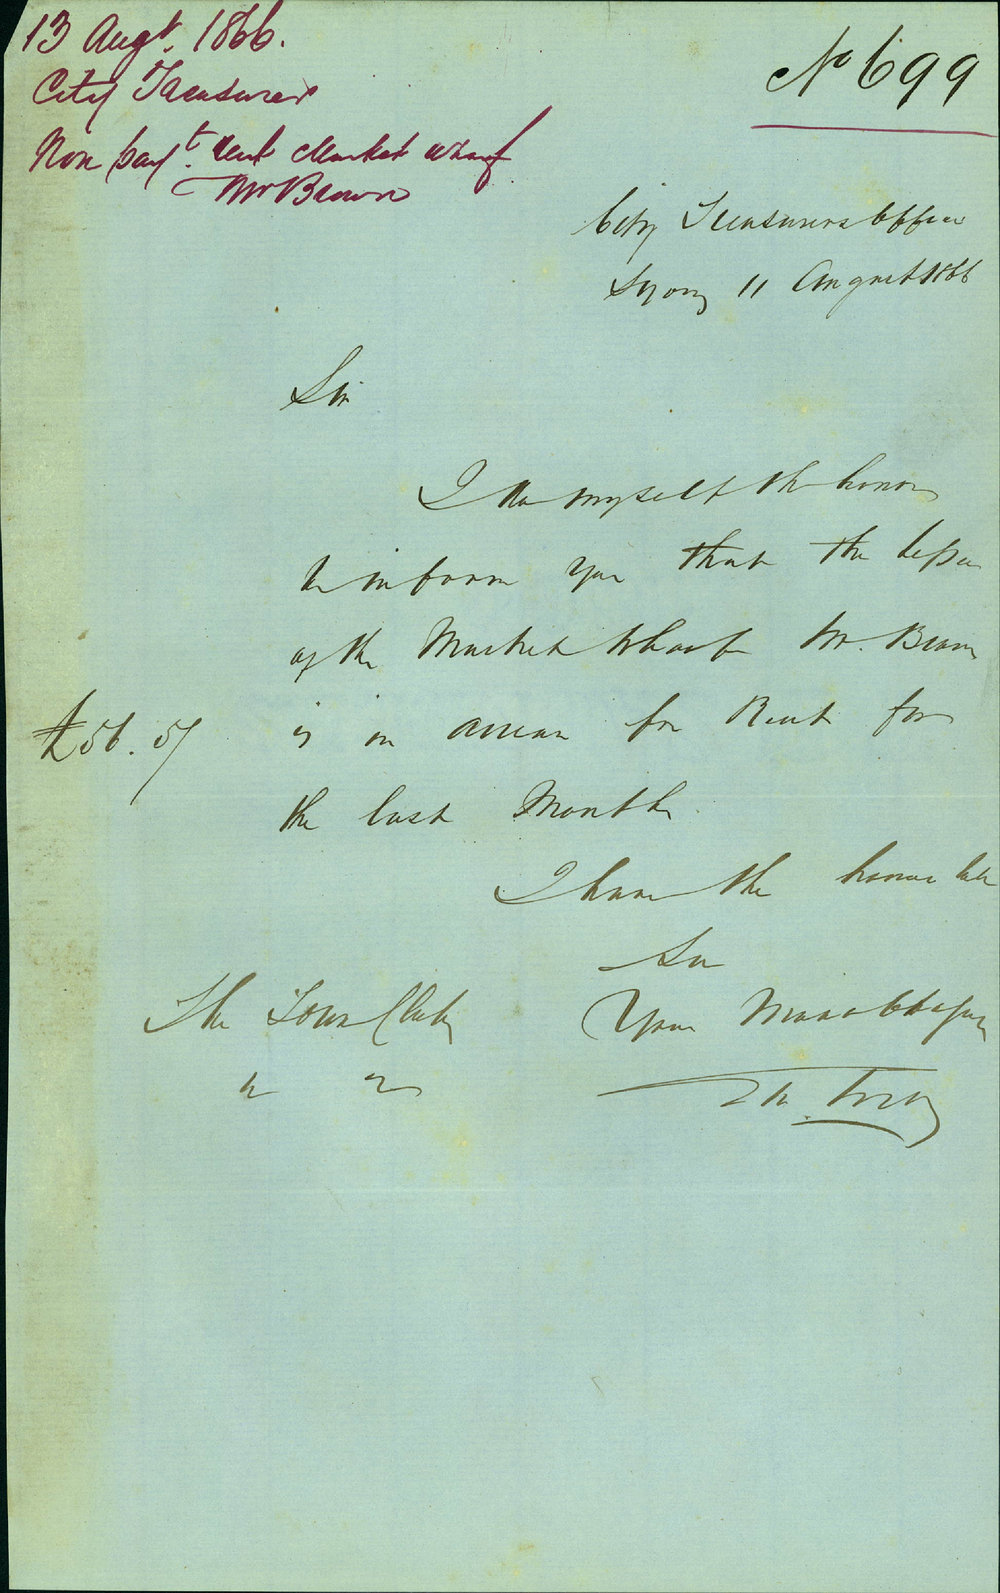 13 Augt. 1866.
City Treasurer
Non payt. Rent Market Wharf
Mr Brown
No 699
City Treasurers Office
Sydney 11 August 1866
Sir
I do myself the honor
to inform you that the Lessee
of the Market Wharf Mr. Brown
£56.5/ is in arrear for Rent for
the last Month
I have the honor to be
Sir
Your Most Obt Serv
The Town Clerk